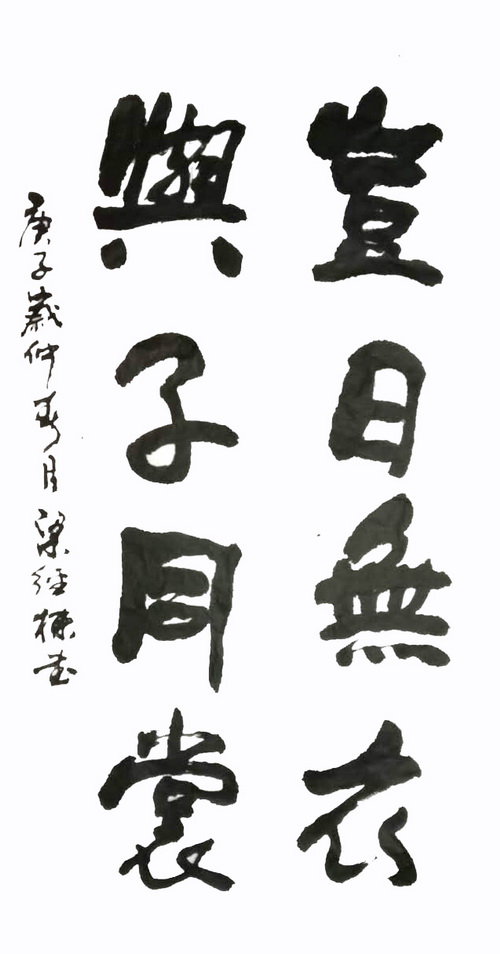 豈曰無衣
與子同裳
庚子歲仲春月梁經棟書